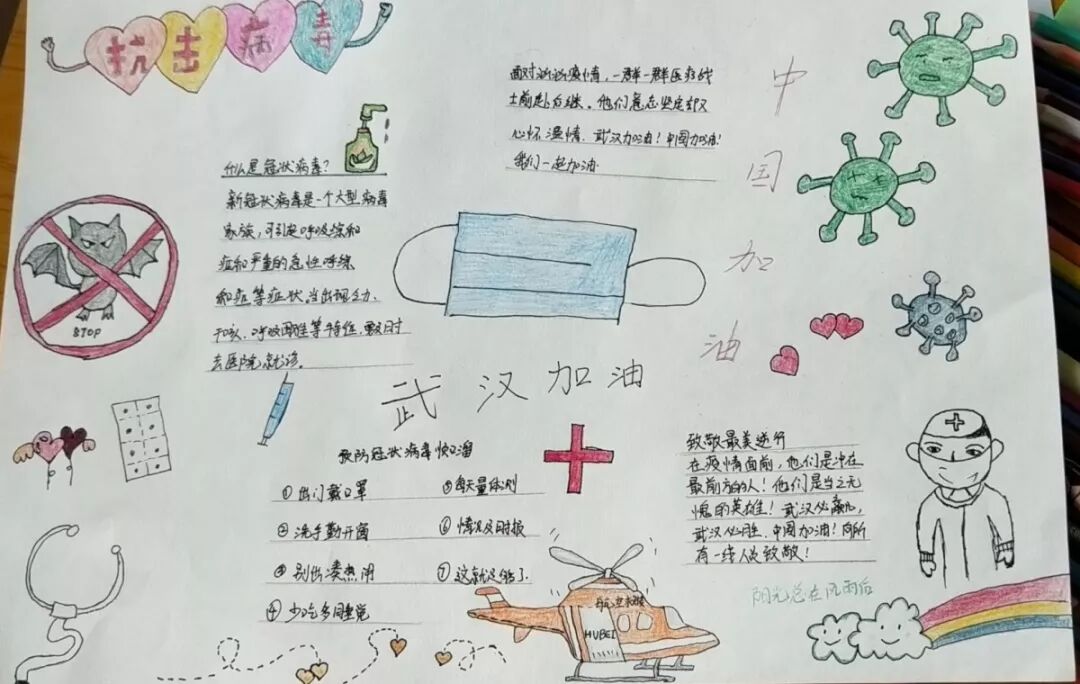 抗击病毒
什么是冠状病毒?
新冠状病毒是一个大型病毒
家族,可引起呼吸综和
症和严重的急性呼综
和症等症状。当出现乏力、
干咳、呼吸困难等特征,要及时
去医院就诊。
面对汹汹疫情,一群一群医疗战
士前赴后继。他们意志坚定却又
心怀温情。武汉加油!中国加油!
我们一起加油
中
国
加
油
STOP
武汉加油
预防冠状病毒顺口溜
①出门戴口罩
⑤每天量体测
②洗手勤开窗
⑥情况及时报
③别出凑热闹
⑦这就足够了.
④少吃多睡觉
致敬最美逆行
在疫情面前,他们是冲在
最前方的人!他们是当之无
愧的英雄!武汉必赢,
武汉必胜.中国加油!向所
有一线人员致敬!
航空救援
HUBEI
阳光总在风雨后